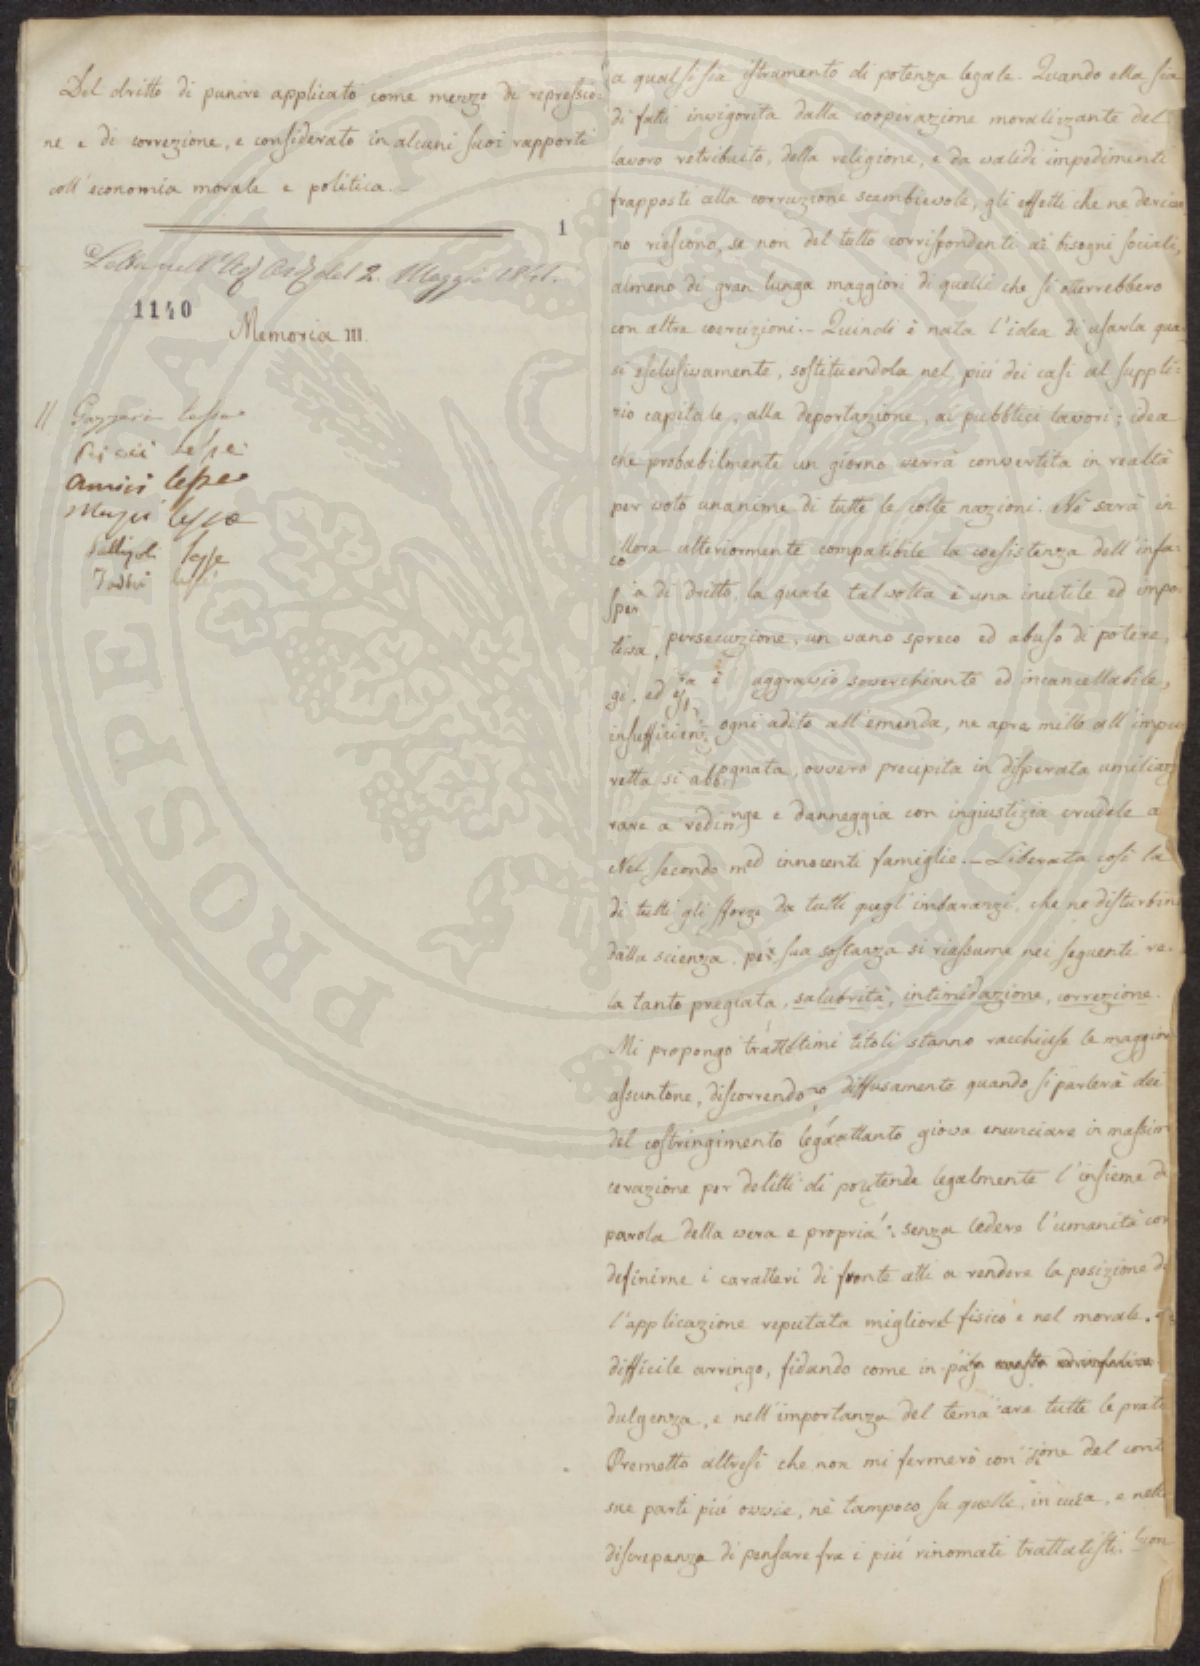 Del dritto di punire applicato come mezzo di repressio-
ne e di correzione, e considerato in alcuni suoi rapporti
coll'economia morale e politica.
1
Letta nell' del 2. Maggio
1140
Memoria III.
Gazzeri lesse
lesse
Amici lesse
lesse
lesse
Taddei
a qualsisia istramento di potenza legale. Quando ella sia
di fatti invigorita dalla cooperazione moralizzante del
lavoro retribuito, della religione, e da validi impedimenti
frapposti alla corruzione scambievole, gli effetti che ne deriva
no riescono, se non del tutto corrispondenti ai bisogni sociali,
almeno di gran lunga maggiori di quelli che si otterrebbero
con altre coercizioni. Quindi è nata l'idea di usarla qua-
si esclusivamente, sostituendola nel più dei casi al suppli-
zio capitale, alla deportazione, ai pubblici lavori; idea
che probabilmente un giorno verrà convertita in realtà
per voto unanime di tutte le colte nazioni. Nè sarà in
co llora ulteriormente compatibile la coesistenza dell'infa-
per a di dritto, la quale talvolta è una inutile ed impo-
tiva, persecuzione, un vano spreco ed abuso di potere,
gi, ed è aggravio soverchiante ed incancellabile,
insufficien ogni adito all'emenda, ne apre mille all'impu
retta si abb ognata, ovvero precipita in disperata umiliaz
rare a redin nge e danneggia con ingiustizia crudele a
Nel secondo m ed innocenti famiglie. Liberata così la
di tutti gli sforzi da tutti quegl'imbarazzi, che ne disturbin
dalla scienza, per sua sostanza si riassume nei seguenti re-
la tanto pregiata, salubrità, intimidazione, correzione.
Mi propongo tratt ltimi titoli stanno racchiuse le maggiori
assuntone, discorrendo no diffusamente quando si parlerà dei
del costringimento lega attanto giova enunciare in massim
cerazione per delitti di poi tende legalmente l'insieme d
parola della vera e propria senza ledere l'umanità con
definirne i caratteri di fronte atti a rendere la posizione d
l'applicazione reputata migliore l fisico e nel morale.
difficile arringo, fidando come in
dulgenza, e nell'importanza del tema are tutte le prati
Premetto altresì che non mi fermerò con ione del cont
sue parti più ovvie, nè tampoco su quelle, in cui a, e nelle
discrepanza di pensare fra i più rinomati trattatisti.
PROSPERITA PUBLICA